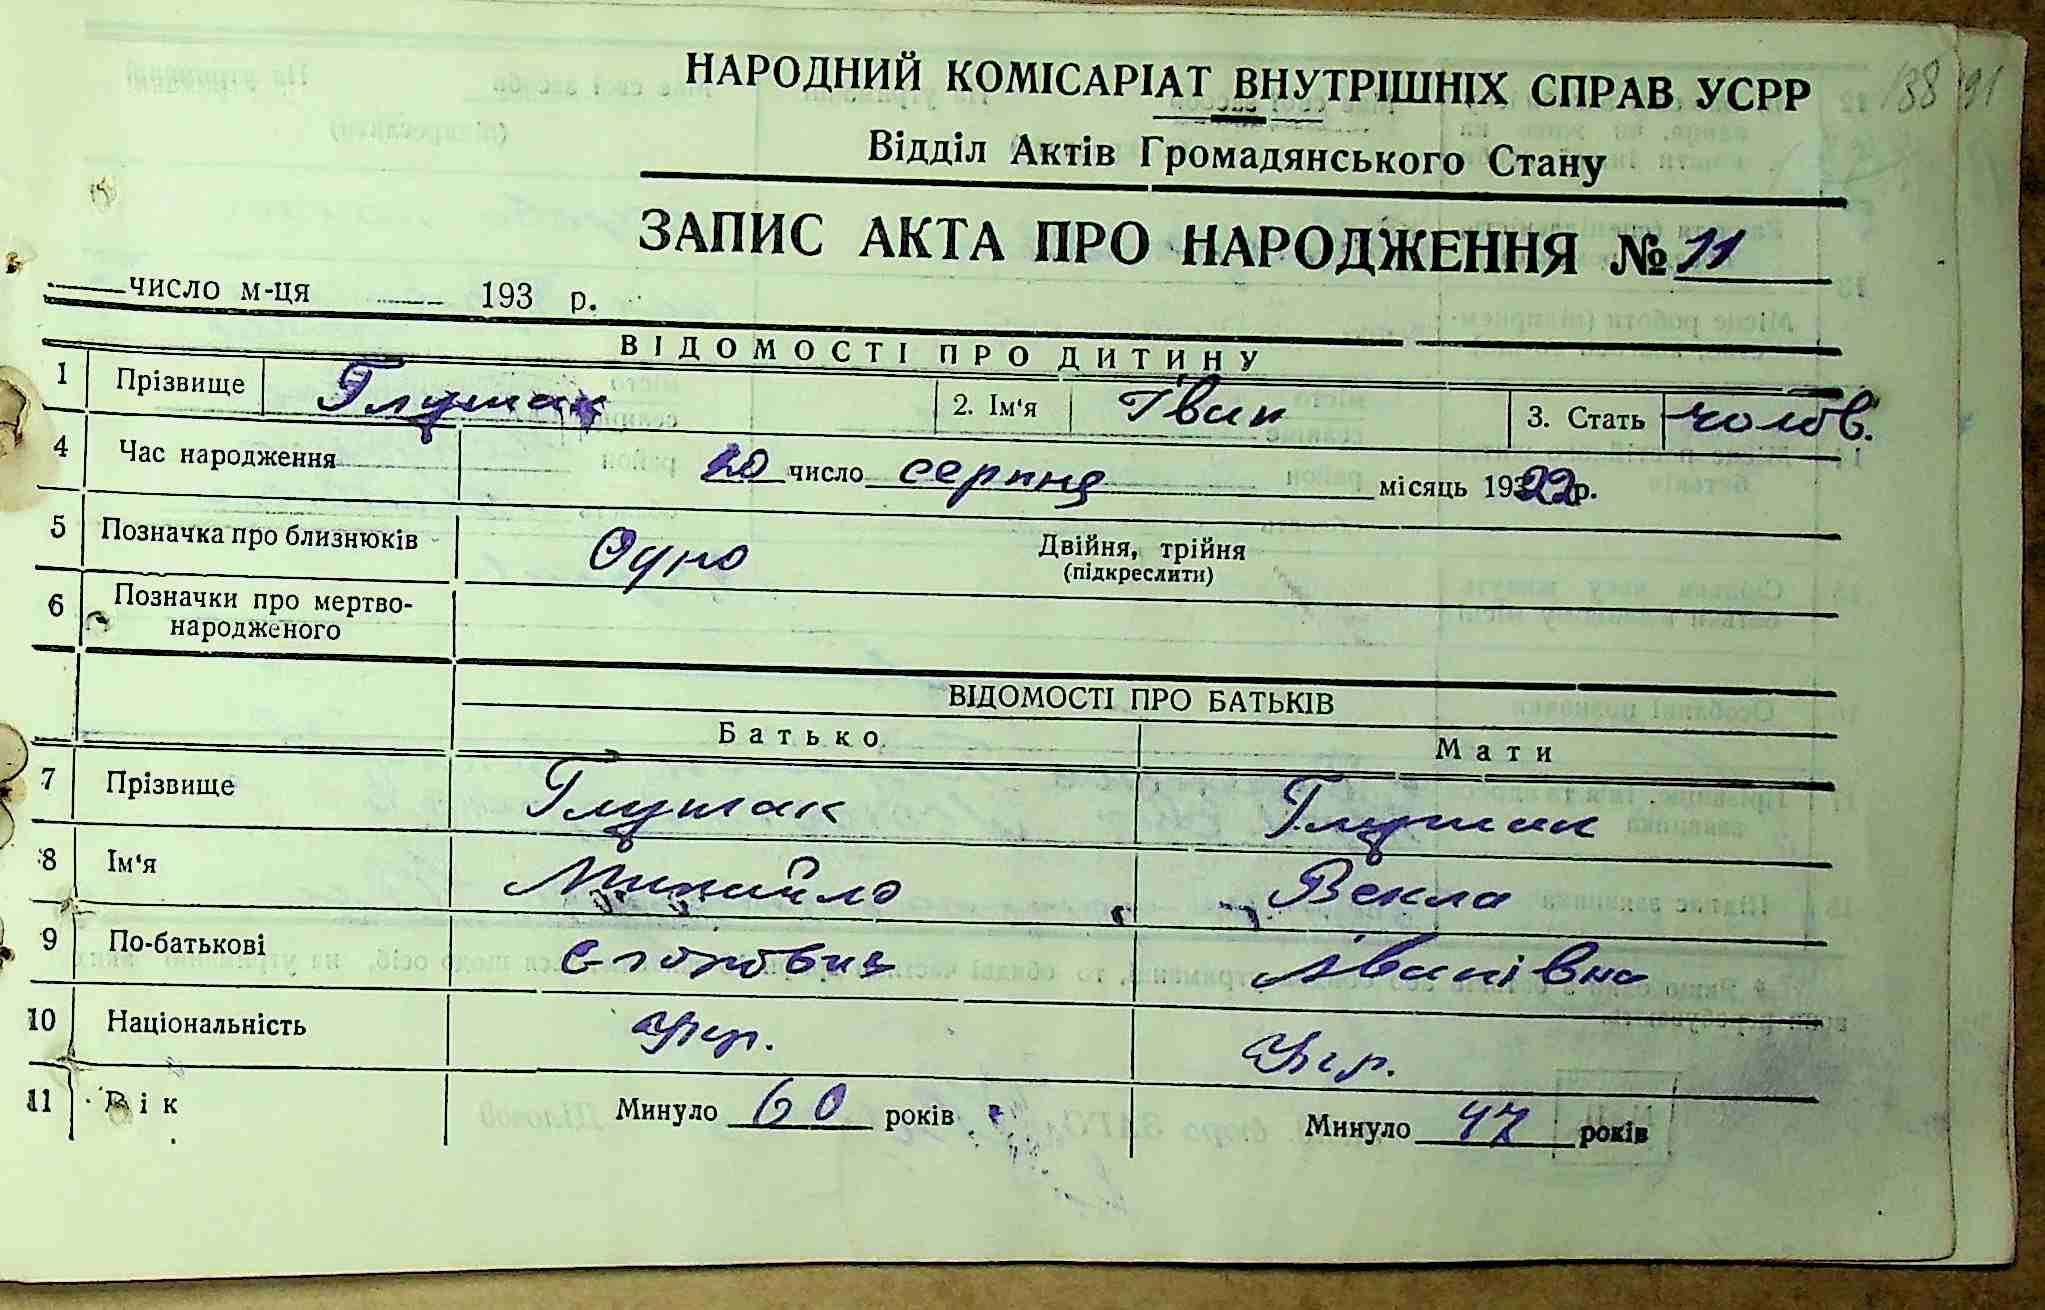 НАРОДНИЙ КОМІСАРІАТ ВНУТРІШНІХ СПРАВ УСРР
188 91
Відділ Актів Громадянського Стану
ЗАПИС АКТА ПРО НАРОДЖЕННЯ № 11
число м-ця 193 р.
ВІДОМОСТІ ПРО ДИТИНУ
1 Прізвище Глушак 2. Ім'я Іван 3. Стать чолов.
4 Час народження 20 число серпня місяць 1922 р.
5 Позначка про близнюків Одно Двійня, трійня
(підкреслити)
6 Позначки про мертво-
народженого
ВІДОМОСТІ ПРО БАТЬКІВ
Батько Мати
7 Прізвище Глушак Глушак
8 Ім'я Михайло Векла
9 По-батькові Іванівна
10 Національність Укр. Укр.
11 Вік Минуло 60 років Минуло 47 років